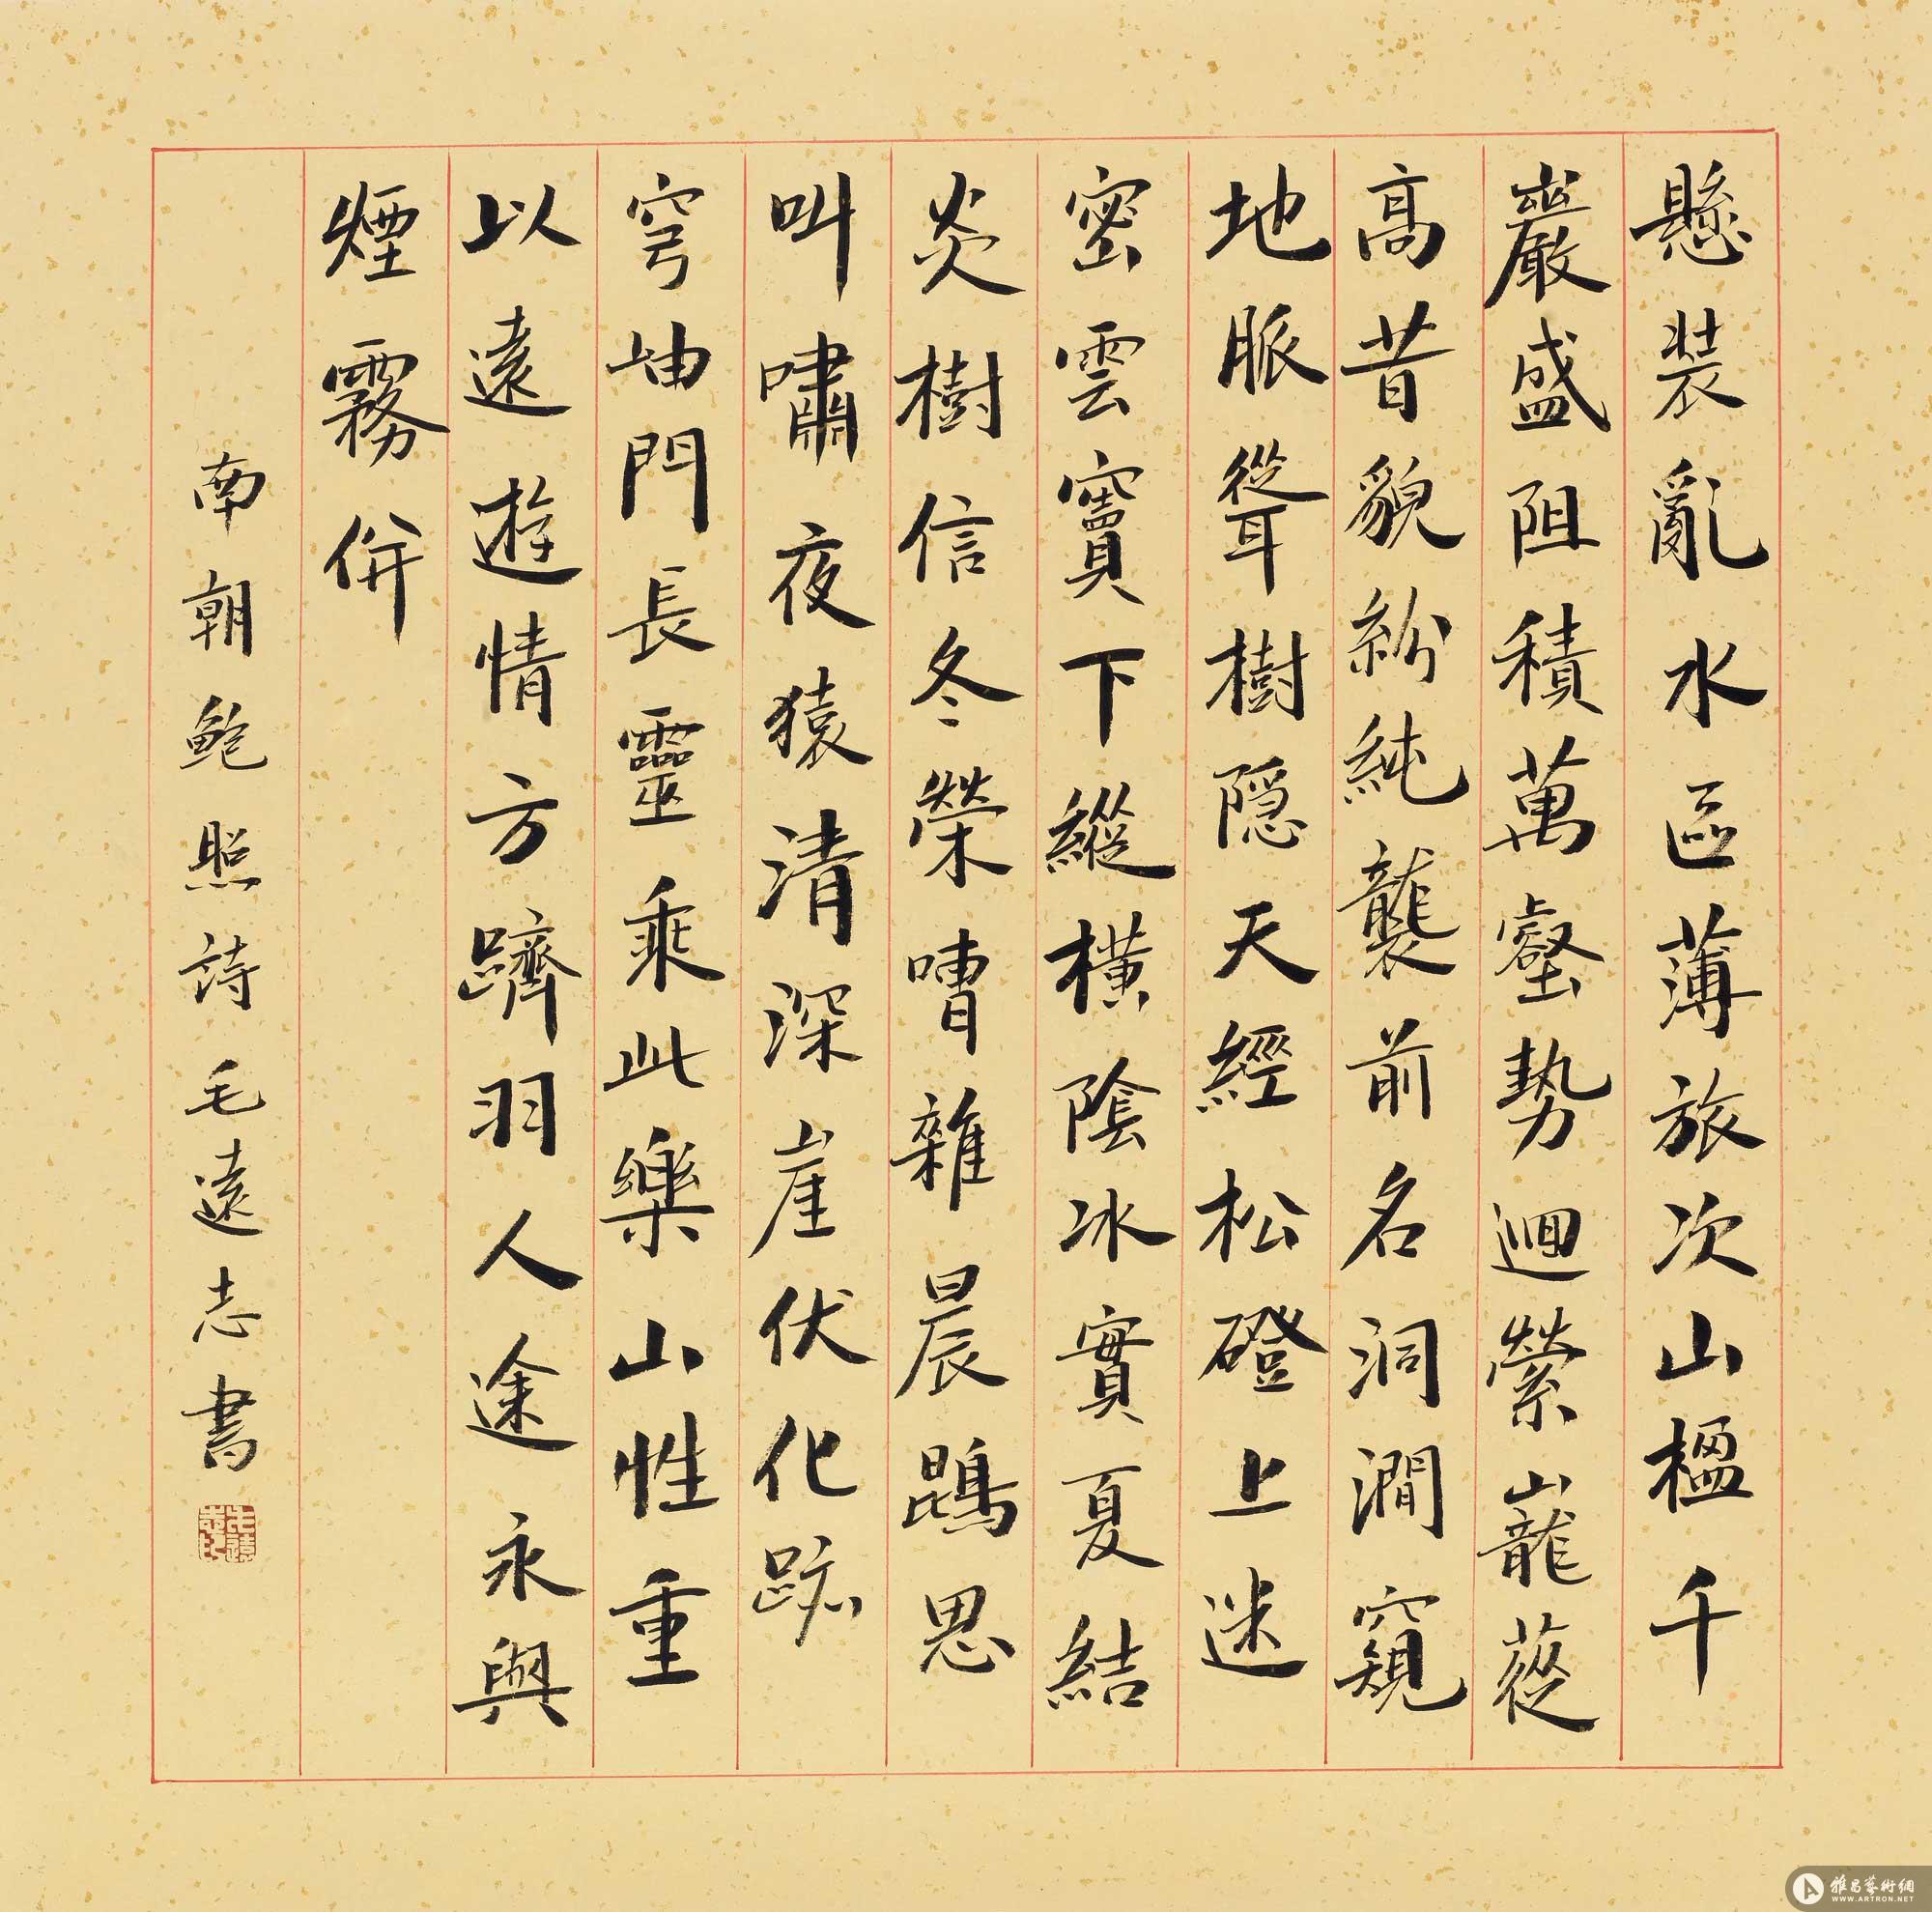 懸裝亂水區薄旅次山楹千
巖盛阻積萬壑勢迴縈巃蓯
高昔貌紛純襲前名洞澗窺
地脈聳樹隱天經松磴上迷
密雲竇下縱橫陰冰實夏結
炎樹信冬榮嘈雜晨鵾思
叫嘯夜猿清深崖伏化跡
穹岫門長靈乘此樂山性重
以遠遊情方躋羽人途永與
煙霧併
南朝鮑照詩毛遠志書
毛遠志印
雅昌藝術網
WWW.ARTRON.NET